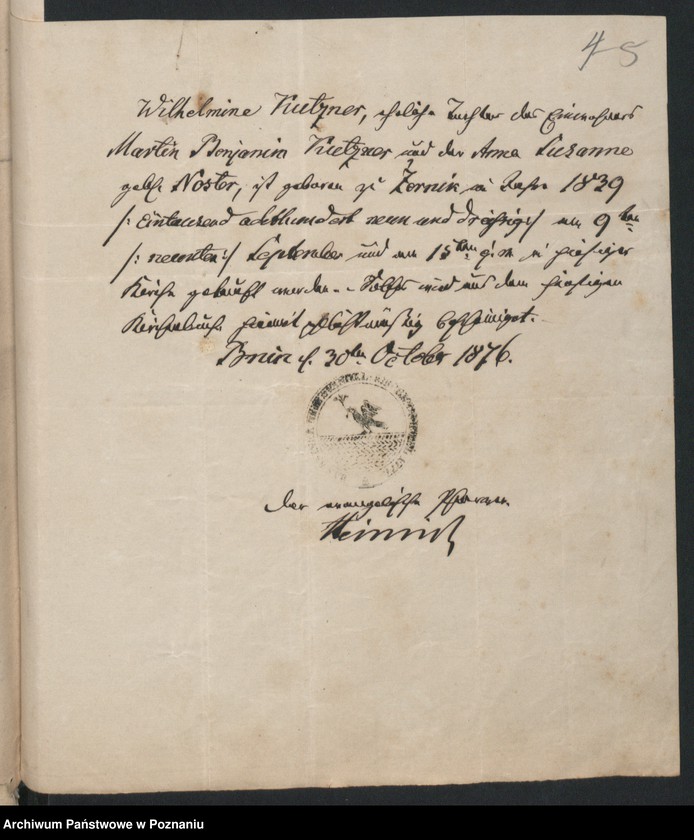 45
Wilhelmine Kutzner, eheliche Tochter des Einwohners
Martin Benjamin Kutzner und der Anna Susanne
geb. Noster, ist geboren zu Zernik im Jahre 1839
/: Eintausend achthundert neun und dreißig :/ am 9ten
/: neunten :/ September und am 15ten ej. m. in hiesiger
Kirche getauft worden. Solches wird aus dem hiesigen
Kirchenbuche hiermit pflichtmäßig bescheinigt.
Bnin d. 30ten October 1876.
Der evangelische Pfarrer
Heinrich
Archiwum Państwowe w Poznaniu